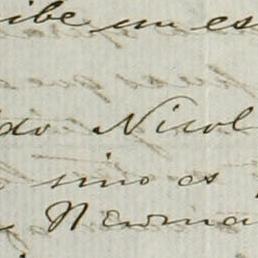 ibe un es
do Nicol
sino es
Newma